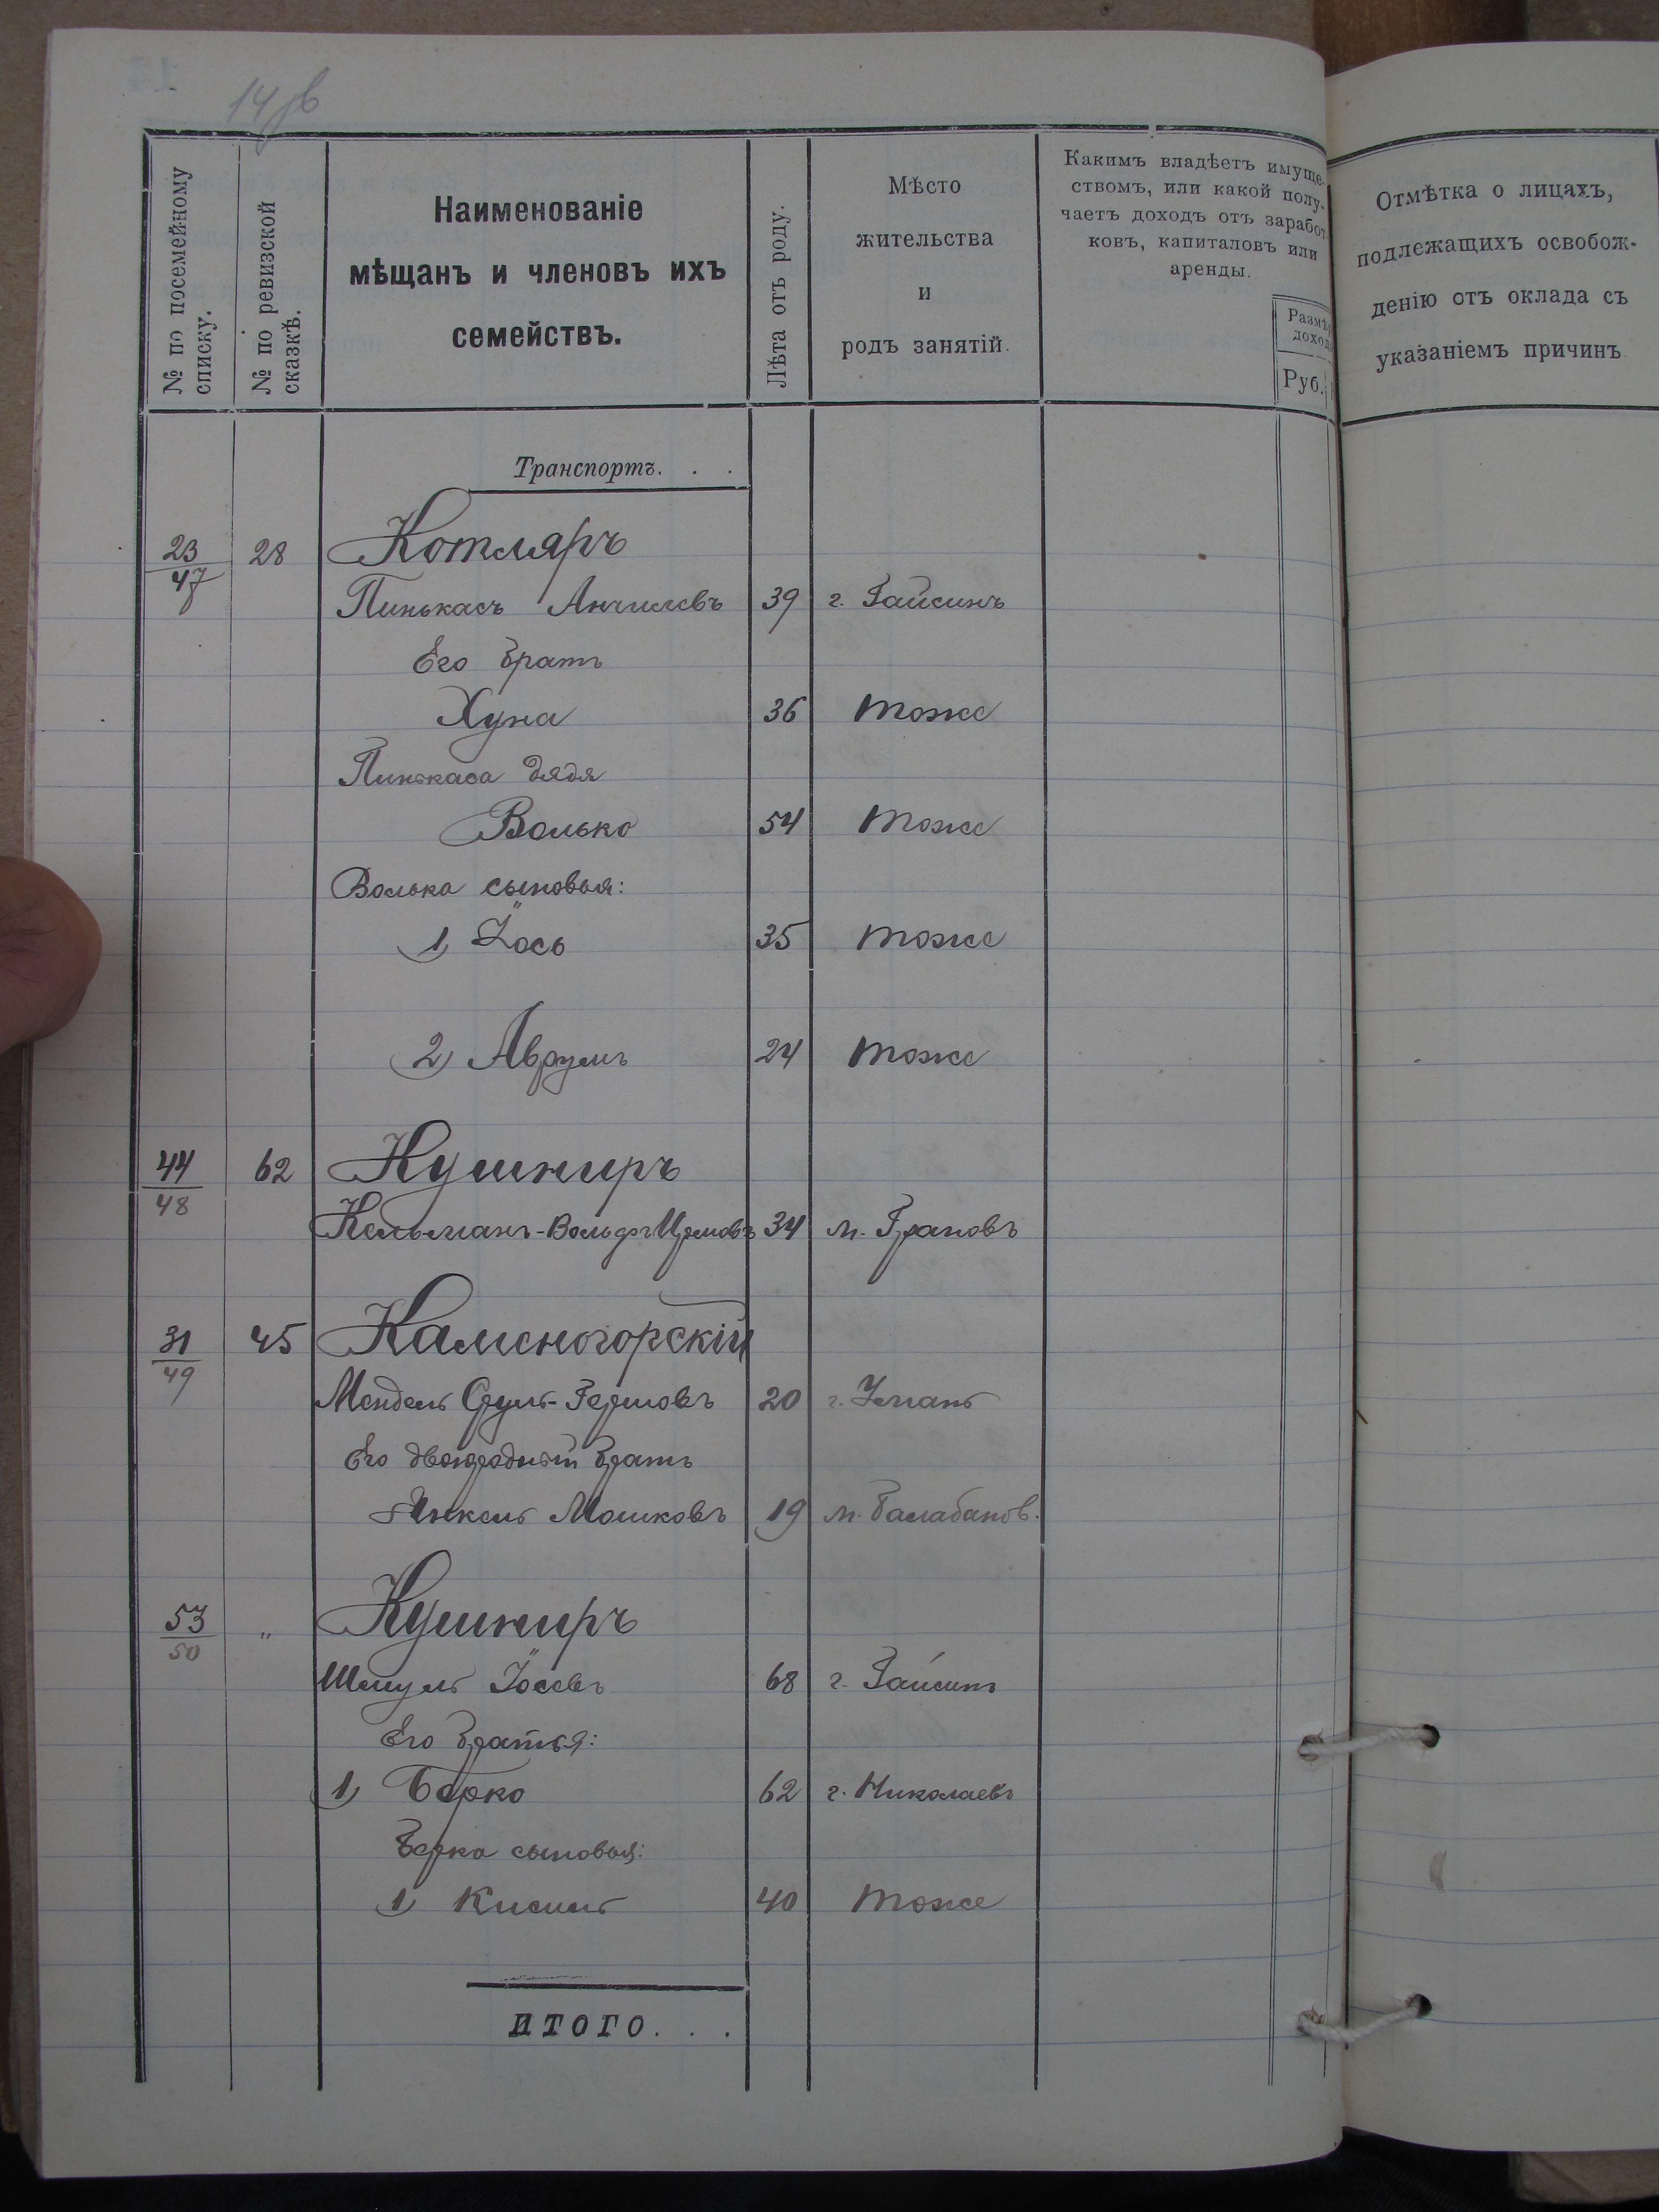 14 об
№ по посемейному списку.
№ по ревизской сказкѣ.
Наименованіе
мѣщанъ и членовъ ихъ
семействъ.
Лѣта отъ роду.
Мѣсто
жительства
и
родъ занятій.
Какимъ владѣетъ имуще-
ствомъ, или какой полу-
чаетъ доходъ отъ заработ-
ковъ, капиталовъ или
аренды.
Размѣ
доход
Руб.
Отмѣтка о лицахъ,
подлежащихъ освобож-
денію отъ оклада съ
указаніемъ причинъ
Транспортъ. . .
23/47 28 Котляръ
Пинькасъ Анчилевъ 39 г. Гайсинъ
Его братъ
Хуна 36 тоже
Пинькаса дядя
Волько 54 тоже
Волька сыновья:
1) Іось 35 тоже
2) Аврумъ 24 тоже
44/48 62 Кушниръ
Кельманъ-Вольфъ 34 м. Грановъ
31/49 45 Каменогорскій
Мендель Сруль-Гершовъ 20 г. Умань
Его двоюродный братъ
Янкель Мошковъ 19 м. Балабанов.
53/50 " Кушниръ
Шмуль Іосевъ 68 г. Гайсинъ
Его братья:
1) Берко 62 г. Николаевъ
Берка сыновья:
1) Кисиль 40 тоже
ИТОГО. . .